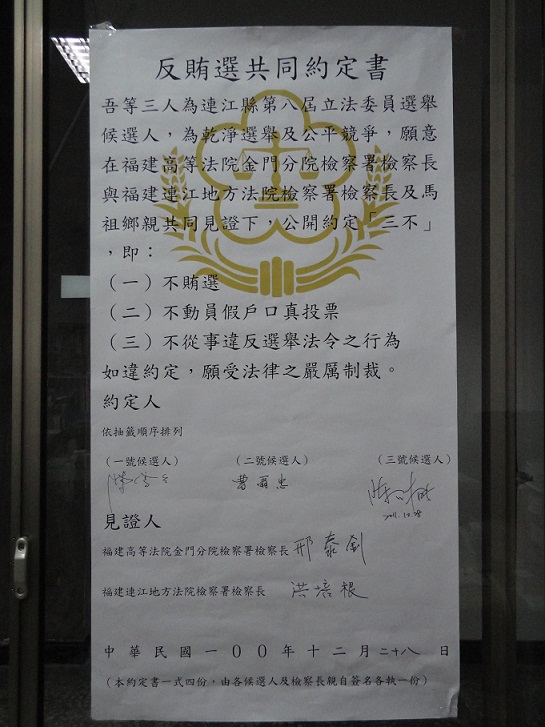 反賄選共同約定書
吾等三人為連江縣第八屆立法委員選舉
候選人，為乾淨選舉及公平競爭，願意
在福建高等法院金門分院檢察署檢察長
與福建連江地方法院檢察署檢察長及馬
祖鄉親共同見證下，公開約定「三不」
，即：
（一）不賄選
（二）不動員假戶口真投票
（三）不從事違反選舉法令之行為
如違約定，願受法律之嚴厲制裁。
約定人
依抽籤順序排列
（一號候選人） （二號候選人） （三號候選人）
曹爾忠
2011.12.28
見證人
福建高等法院金門分院檢察署檢察長 邢泰釗
福建連江地方法院檢察署檢察長 洪培根
中華民國一００年十二月二十八日
（本約定書一式四份，由各候選人及檢察長親自簽名各執一份）